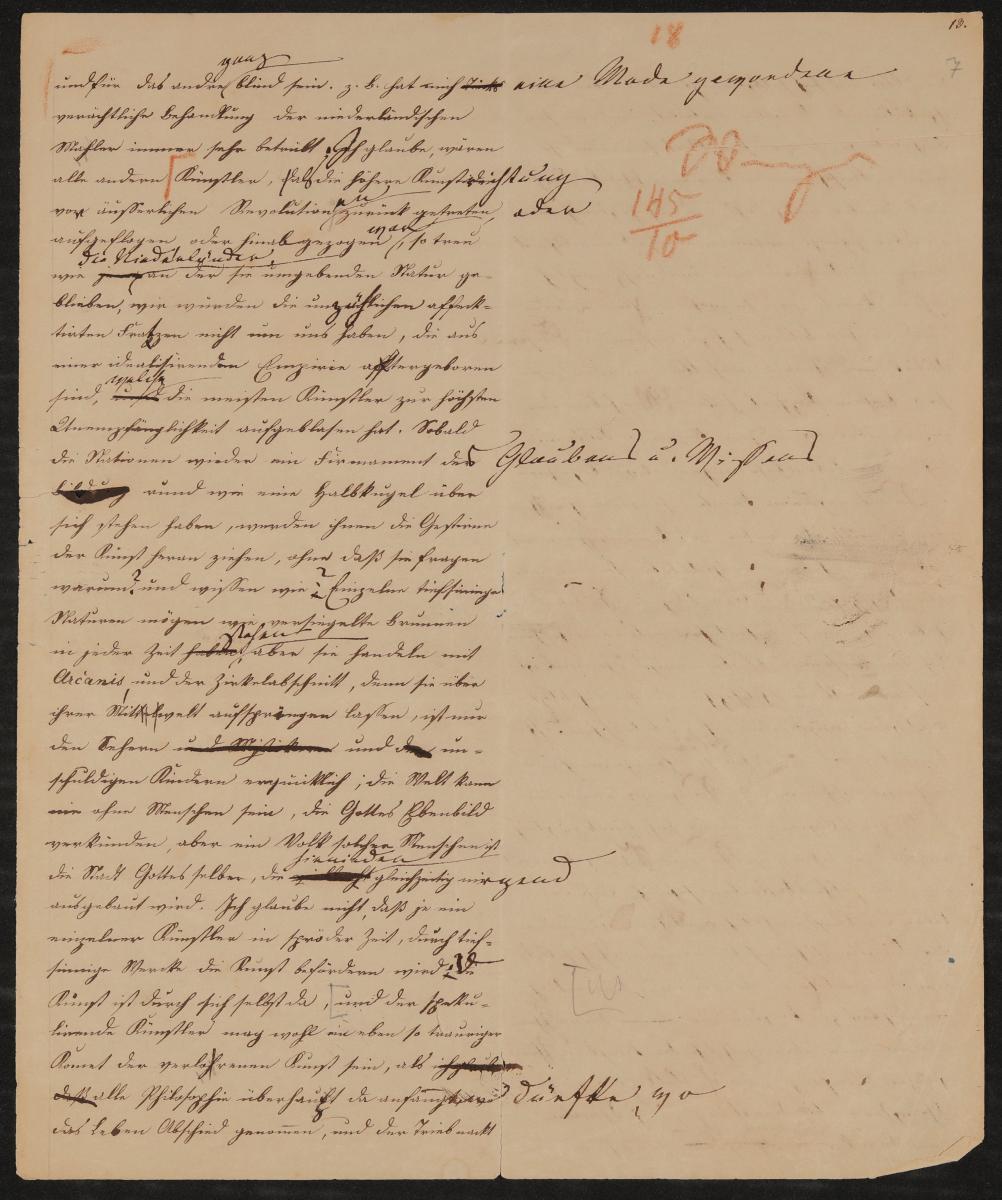 18
18.
7
ganz
und für das andre blind sein. z. B. hat mich eine Mode gewordene
verächtliche Behandlung der niederländischen
Mahler immer sehr betrübt, Ich glaube, wären
alle andern Künstler, als die höhere Kunstrichtung
vor äusserlichen Revolutionen zurück getreten, oder
145
10
aufgeflogen oder hinab gezogen war, so treu
die Niederländer,
wie an der sie umgebenden Natur ge-
blieben, wir würden die unzähligen affek-
tirten Fratzen nicht um uns haben, die aus
einer idealisirenden Empirie aftergeboren
welche
sind, die meisten Künstler zur höchsten
Unempfänglichkeit aufgeblasen hat. Sobald
die Nationen wieder ein Firmament des Glaubens u. Wissens
Bildung rund wie eine Halbkugel über
sich stehen haben, werden ihnen die Gestirne
der Kunst heran ziehen, ohne daß sie fragen
warum? und wissen wie? Einzelne tiefsinnige
Naturen mögen wie versiegelte Brunnen
stehen
in jeder Zeit haben, aber sie handeln mit
Arcanis, und der Zirkelabschnitt, den sie über
ihrer Mitwelt aufspringen lassen, ist nur
den Sehern und Mystikern und den un-
schuldigen Kindern erquicklich; die Welt kann
nie ohne Menschen sein, die Gottes Ebenbild
verkünden, aber ein Volk solcher Menschen ist
hienieden
die Stadt Gottes selber, die gleichzeitig nirgend
ausgebaut wird. Ich glaube nicht, daß je ein
einzelner Künstler in spröder Zeit, durch tief-
sinnige Wercke die Kunst befördern wird; die
Kunst ist durch sich selbst da, und der speku-
lirende Künstler mag wohl ein eben so trauriger
Komet der verlohrenen Kunst sein, als
daß alle Philosophie überhaupt da anfangen dürfte, wo
das Leben Abschied genommen, und der Trieb nackt